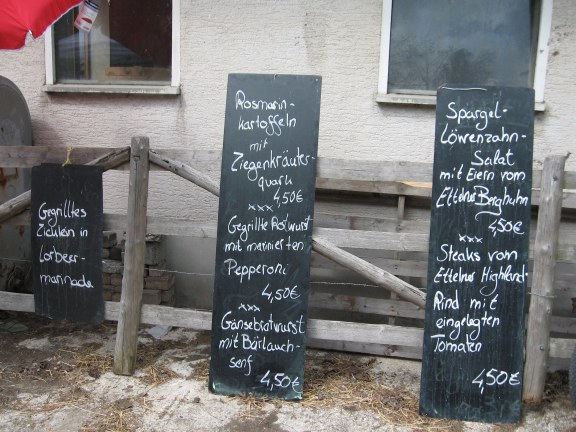 Gegrilltes
Zicklein in
Lorbeer-
marinade
Rosmarin-
kartoffeln
mit
Ziegenkräuter-
quark
4,50€
xxx
Gegrillte Rotwurst
mit marinierten
Pepperoni
4,50€
xxx
Gänsebratwurst
mit Bärlauch-
senf
4,50€
Spargel-
Löwenzahn-
Salat
mit Eiern vom
Berghuhn
4,50€
xxx
Steaks vom
Highland-
Rind mit
eingelegten
Tomaten
4,50€